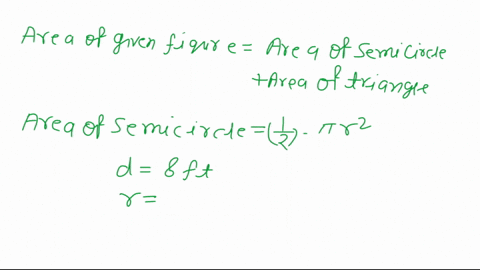 Area of given figure = Area of semicircle
+Area of triangle
Area of semicircle = (1/2) . πr²
d = 8 ft
r =